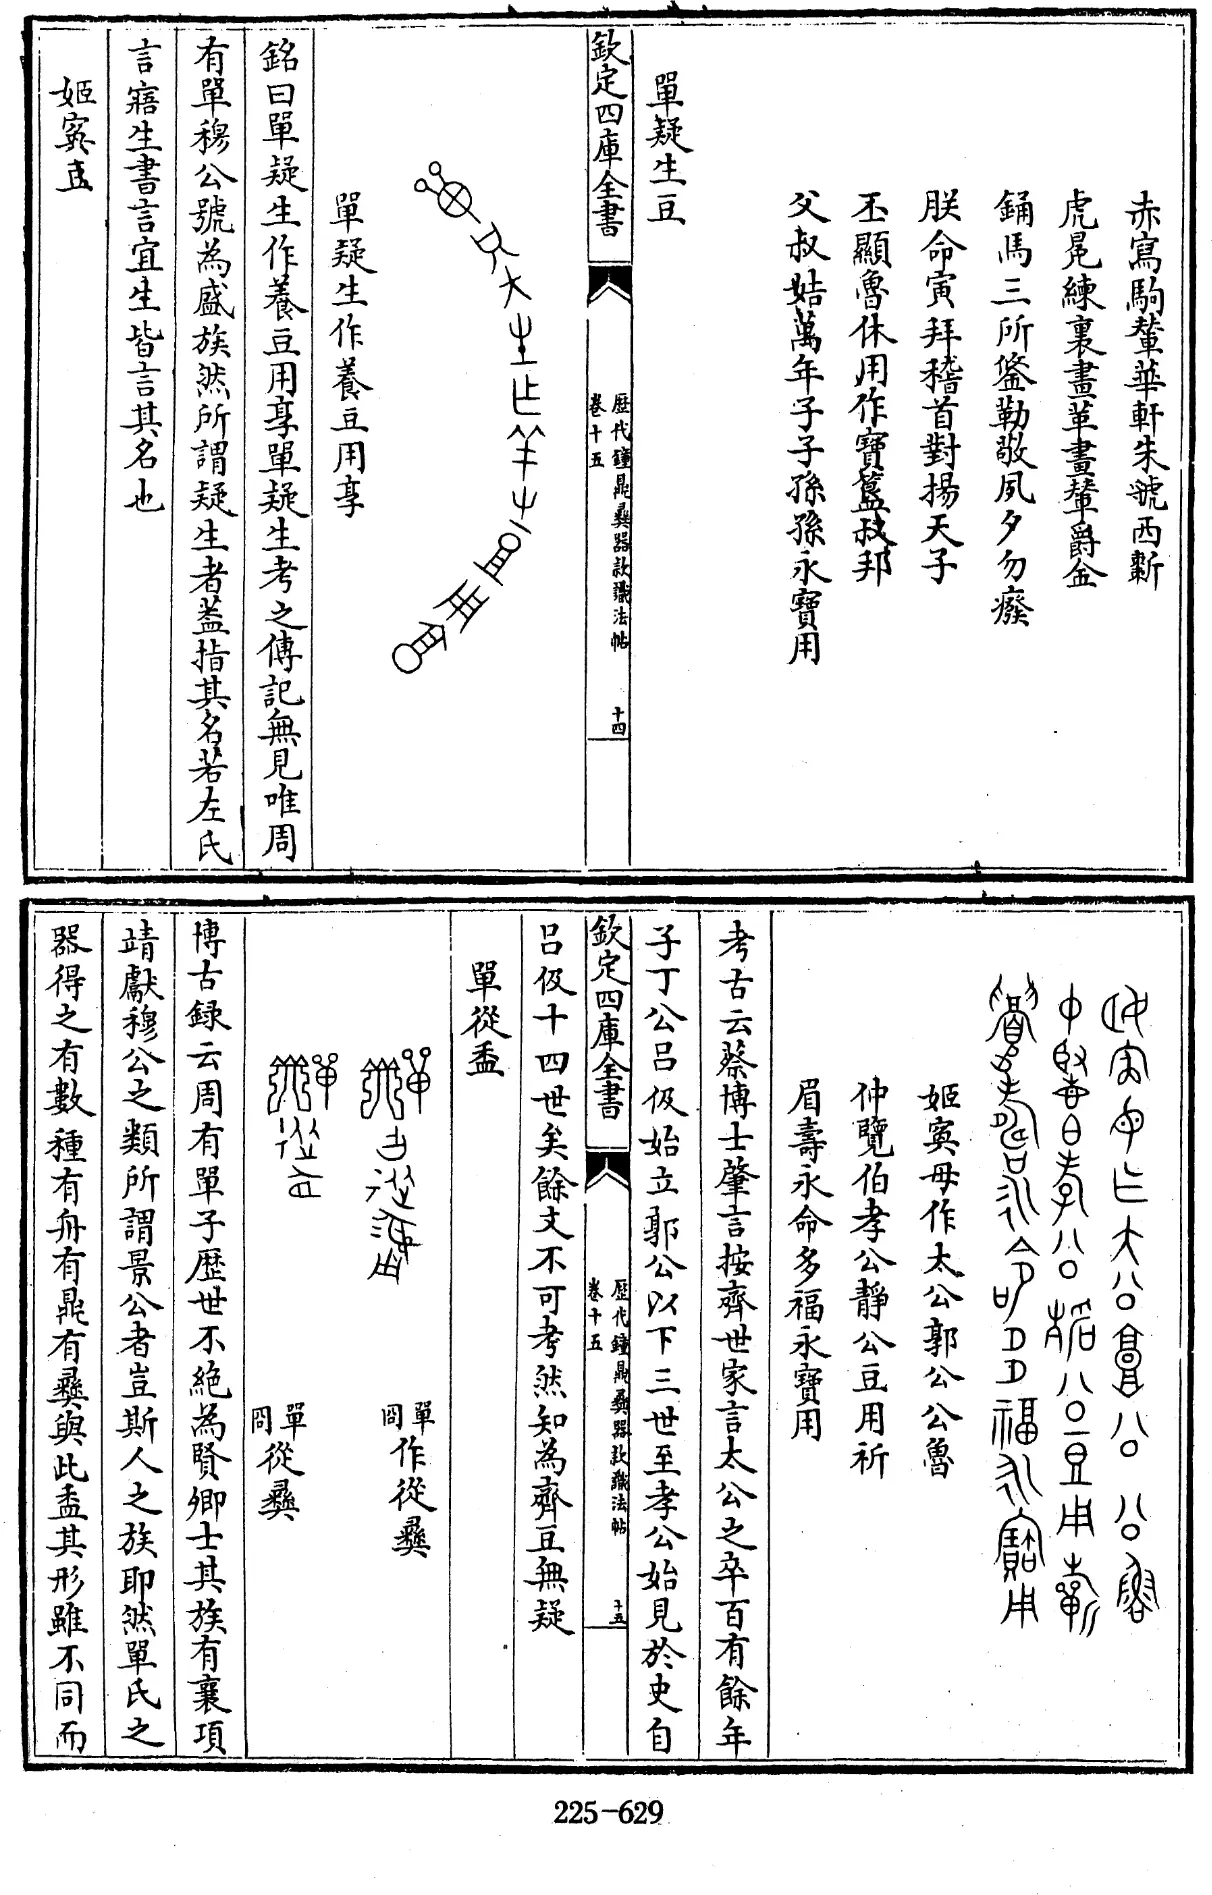 赤寫駒輦華軒朱虢䩛
虎冕練裏畫䩛畫䡝爵金
鋪馬三所鋚勒敬夙夕勿癈
朕命寅拜稽首對揚天子
丕顯魯休用作寶簋叔邦
父叔姞萬年子子孫孫永寶用
單疑生豆
欽定四庫全書
歷代鐘鼎彞器款識法帖
卷十五
十四
單疑生作養豆用享
銘曰單疑生作養豆用享單疑生考之傳記無見唯周
有單穆公號為盛族然所謂疑生者葢指其名若左氏
言寤生書言宜生皆言其名也
姬寏豆
姬寏母作太公郭公公魯
仲覽伯孝公靜公豆用祈
眉壽永命多福永寶用
考古云蔡博士肇言按齊世家言太公之卒百有餘年
子丁公吕伋始立郭公以下三世至孝公始見於史自
欽定四庫全書
歷代鐘鼎彞器款識法帖
卷十五
十五
吕伋十四世矣餘文不可考然知為齊豆無疑
單從盉
單冏作從彞
單冏從彞
博古錄云周有單子歴世不絶為賢卿士其族有襄項
靖獻穆公之類所謂景公者豈斯人之族耶然單氏之
器得之有數種有舟有鼎有彞與此盉其形雖不同而
225-629